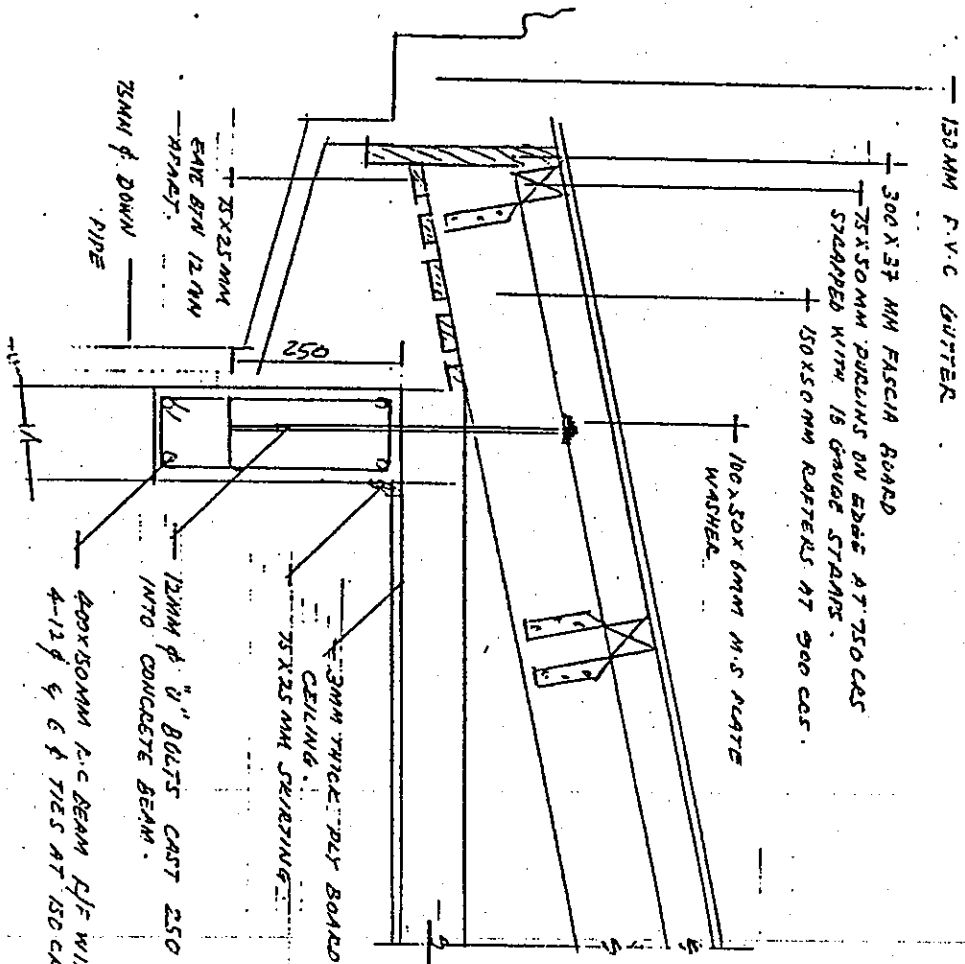 150 MM P.V.C GUTTER
300 X 37 MM FASCIA BOARD
75X50MM PURLINS ON EDGE AT 750 CRS
STRAPPED WITH 16 GAUGE STRAPS.
150X50MM RAFTERS AT 900 CRS.
100X50X 6MM M.S PLATE
WASHER
3MM THICK PLY BOARD
CEILING.
75X25 MM SKIRTING
12MM φ "U" BOLTS CAST 250
INTO CONCRETE BEAM.
400X150MM R.C BEAM R/F WI
4-12φ & 6 φ TIES AT 150 CR
250
75X25MM
EAVE BTN 12MM
APART.
75MM φ DOWN
PIPE